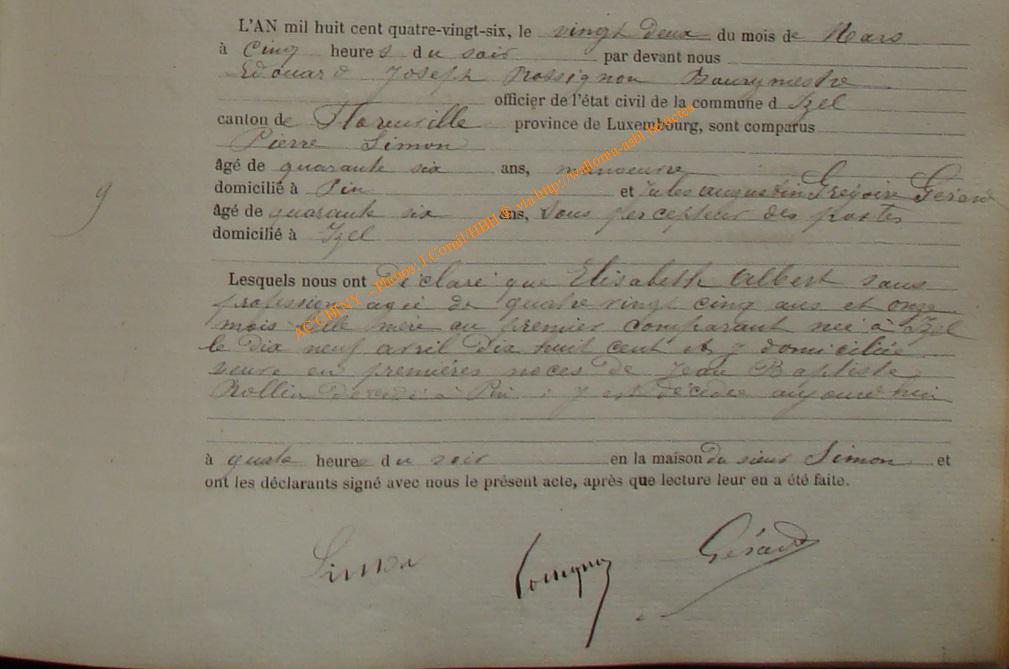 L'AN mil huit cent quatre-vingt-six, le vingt deux du mois de Mars
à cinq heures du soir par devant nous
Edouard Joseph Rossignon Bourgmestre
officier de l'état civil de la commune d Izel
canton de Florenville province de Luxembourg, sont comparus
Pierre Simon
âgé de quarante six ans, manoeuvre
domicilié à Pin et Jules augustin Grégoire Gérard
âgé de quarante six ans, Sous percepteur des postes
domicilié à Izel
9
Lesquels nous ont déclaré que Elisabeth Albert sans
profession agée de quatre vingt cinq ans et onze
mois elle mère au premier comparant née à Izel
le Dix neuf avril Dix huit cent et y domiciliée
veuve en premières noces de Jean Baptiste
Rollin décédé à Pin : y est décédée aujourd'hui
à quatre heures du soir en la maison du sieur Simon et
ont les déclarants signé avec nous le présent acte, après que lecture leur en a été faite.
Simon Rossignon Gérard
ACCHINY - Photos J.Cornil/HBH © via http://walloma-asbl